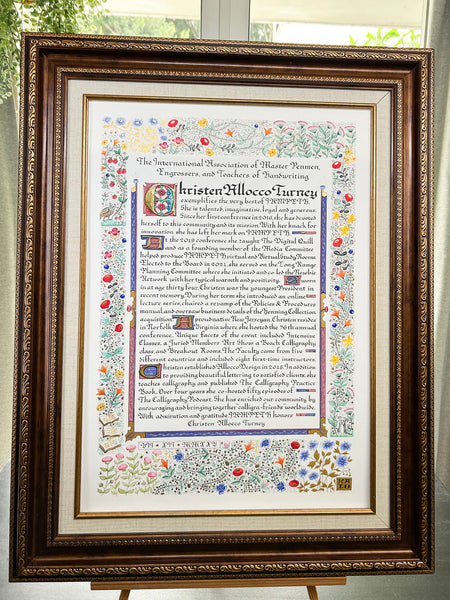 The International Association of Master Penmen,
Engrossers, and Teachers of Handwriting
Christen Allocco Turney
exemplifies the very best of IAMPETH.
She is talented, imaginative, loyal and generous.
Since her first conference in 2016, she has devoted
herself to this community and its mission. With her knack for
innovation she has left her mark on IAMPETH.
At the 2019 conference she taught The Digital Quill
and as a founding member of the Media Committee
helped produce IAMPETH Virtual and Virtual Study Rooms.
Elected to the Board in 2021, she served on the Long Range
Planning Committee where she initiated and co-led the Newbie
Network with her typical warmth and positivity. Sworn
in at age thirty four, Christen was the youngest President in
recent memory. During her term she introduced an online
lecture series, chaired a revamp of the Policies & Procedures
manual, and oversaw business details of the Henning Collection
acquisition. An innovative New Jerseyan, Christen resides
in Norfolk, Virginia where she hosted the 76th annual
conference. Unique facets of the event included Intensive
Classes, a Juried Members' Art Show, a Beach Calligraphy
class, and Breakout Rooms. The Faculty came from five
different countries and included eight first-time instructors.
Christen established Allocco Design in 2012. In addition
to providing beautiful lettering to satisfied clients, she
teaches calligraphy and published The Calligraphy Practice
Book. Over four years she co-hosted fifty episodes of
The Calligraphy Podcast. She has enriched our community by
encouraging and bringing together calligra-friends worldwide.
With admiration and gratitude IAMPETH honors
Christen Allocco Turney